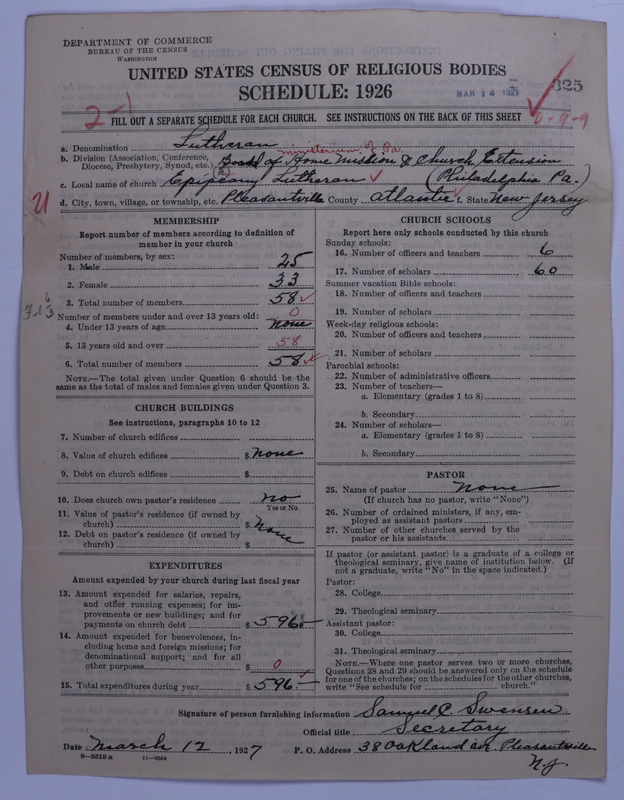 DEPARTMENT OF COMMERCE
BUREAU OF THE CENSUS
WASHINGTON
UNITED STATES CENSUS OF RELIGIOUS BODIES
SCHEDULE: 1926
MAR 14 1927
325
2-1
FILL OUT A SEPARATE SCHEDULE FOR EACH CHURCH. SEE INSTRUCTIONS ON THE BACK OF THIS SHEET
0-9-9
a. Denomination Lutheran
ministerium of Pa.
b. Division (Association, Conference, Diocese, Presbytery, Synod, etc.) Board of Home Mission & Church Extension
c. Local name of church Epipeany Lutheran (Philadelphia Pa.)
(h)
d. City, town, village, or township, etc. Pleasantville County Atlantic f. State New Jersey
MEMBERSHIP
Report number of members according to definition of
member in your church
Number of members, by sex:
1. Male 25
2. Female 33
3. Total number of members 58
Number of members under and over 13 years old: 0
4. Under 13 years of age None
5. 13 years old and over 58
6. Total number of members 58
NOTE.—The total given under Question 6 should be the
same as the total of males and females given under Question 3.
CHURCH BUILDINGS
See instructions, paragraphs 10 to 12
7. Number of church edifices
8. Value of church edifices $ None
9. Debt on church edifices $
10. Does church own pastor's residence No
Yes or No
11. Value of pastor's residence (if owned by
church) $ None
12. Debt on pastor's residence (if owned by
church) $
EXPENDITURES
Amount expended by your church during last fiscal year
13. Amount expended for salaries, repairs,
and other running expenses; for im-
provements or new buildings; and for
payments on church debt $ 596.—
14. Amount expended for benevolences, in-
cluding home and foreign missions; for
denominational support; and for all
other purposes $ 0
15. Total expenditures during year $ 596.—
CHURCH SCHOOLS
Report here only schools conducted by this church
Sunday schools:
16. Number of officers and teachers 6
17. Number of scholars 60
Summer vacation Bible schools:
18. Number of officers and teachers
19. Number of scholars
Week-day religious schools:
20. Number of officers and teachers
21. Number of scholars
Parochial schools:
22. Number of administrative officers
23. Number of teachers—
a. Elementary (grades 1 to 8)
b. Secondary
24. Number of scholars—
a. Elementary (grades 1 to 8)
b. Secondary
PASTOR
25. Name of pastor None
(If church has no pastor, write "None")
26. Number of ordained ministers, if any, em-
ployed as assistant pastors
27. Number of other churches served by the
pastor or his assistants
If pastor (or assistant pastor) is a graduate of a college or
theological seminary, give name of institution below. (If
not a graduate, write "No" in the space indicated.)
Pastor:
28. College
29. Theological seminary
Assistant pastor:
30. College
31. Theological seminary
NOTE.—Where one pastor serves two or more churches,
Questions 28 and 29 should be answered only on the schedule
for one of the churches; on the schedules for the other churches,
write "See schedule for church."
Signature of person furnishing information Samuel C. Swensen
Official title Secretary
Date March 12, 1927 P. O. Address 38 Oakland av. Pleasantville
N.J.
8—5518a 11—9564